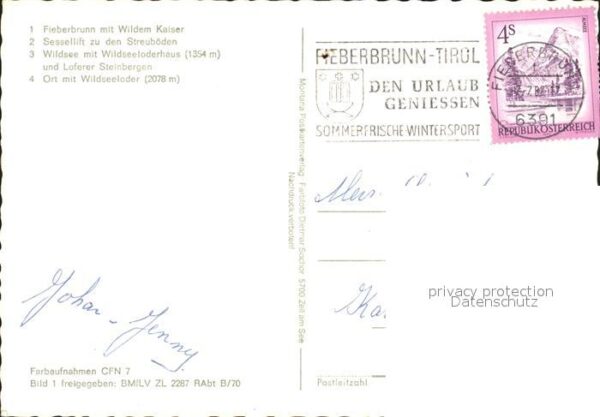 1 Fieberbrunn mit Wildem Kaiser
2 Sessellift zu den Streuböden
3 Wildsee mit Wildseeloderhaus (1854 m)
und Loferer Steinbergen
4 Ort mit Wildseeloder (2078 m)
FIEBERBRUNN-TIROL
DEN URLAUB
GENIESSEN
SOMMERFRISCHE WINTERSPORT
4S
FIEBERBRUNN
6391
REPUBLIK ÖSTERREICH
Montana Postkartenverlag Farbfoto Dietmar Sochor 5700 Zell am See
Nachdruck verboten!
Johan - Jenny
privacy protection
Datenschutz
Farbaufnahmen CFN 7
Bild 1 freigegeben: BMfLV ZL 2287 RAbt B/70
Postleitzahl